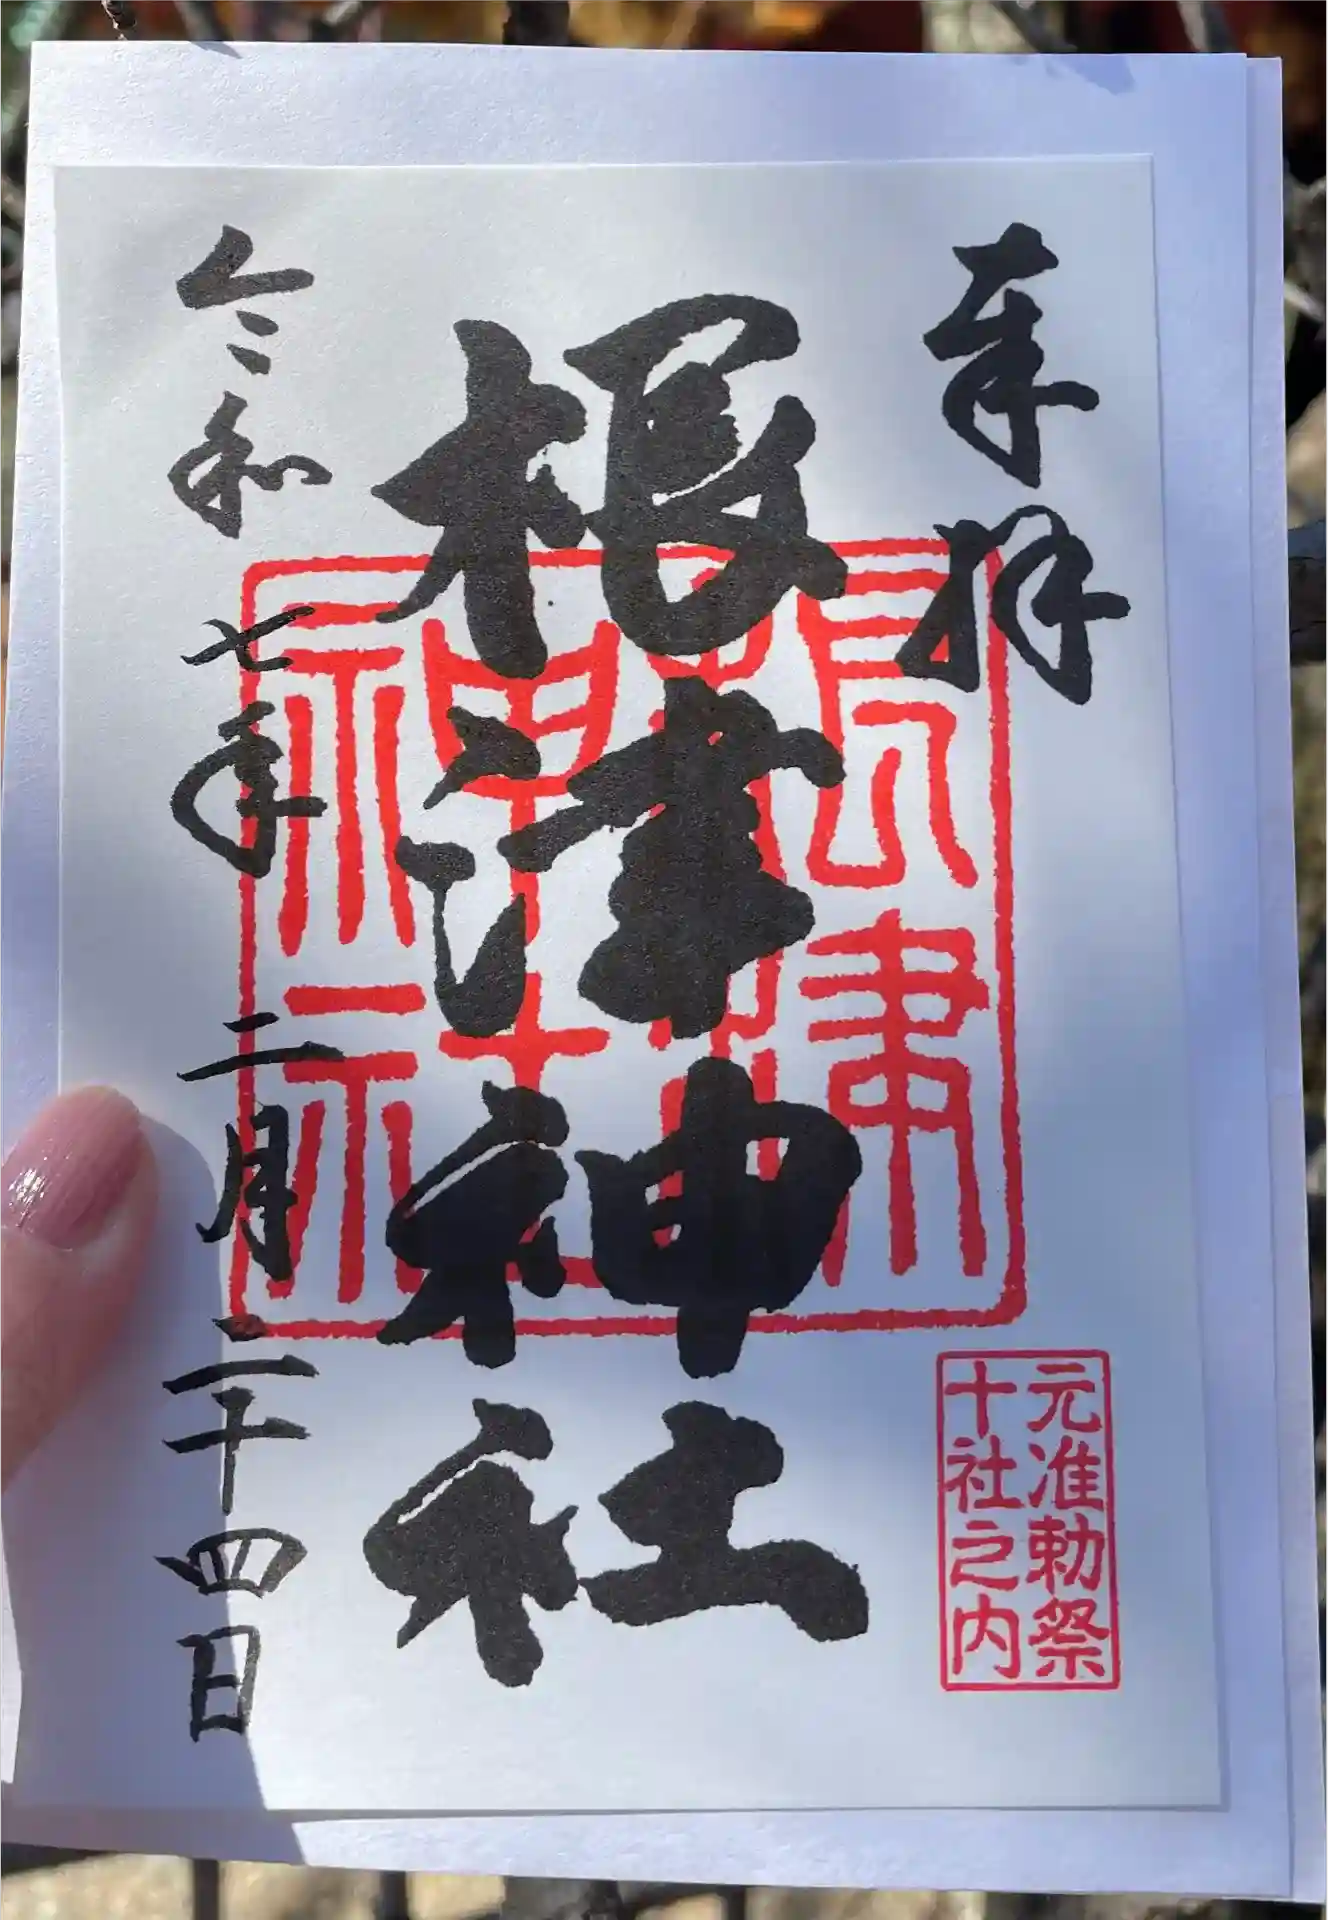 奉拝
元准勅祭
十社之内
根津神社
根津
神社
令和七年二月二十四日